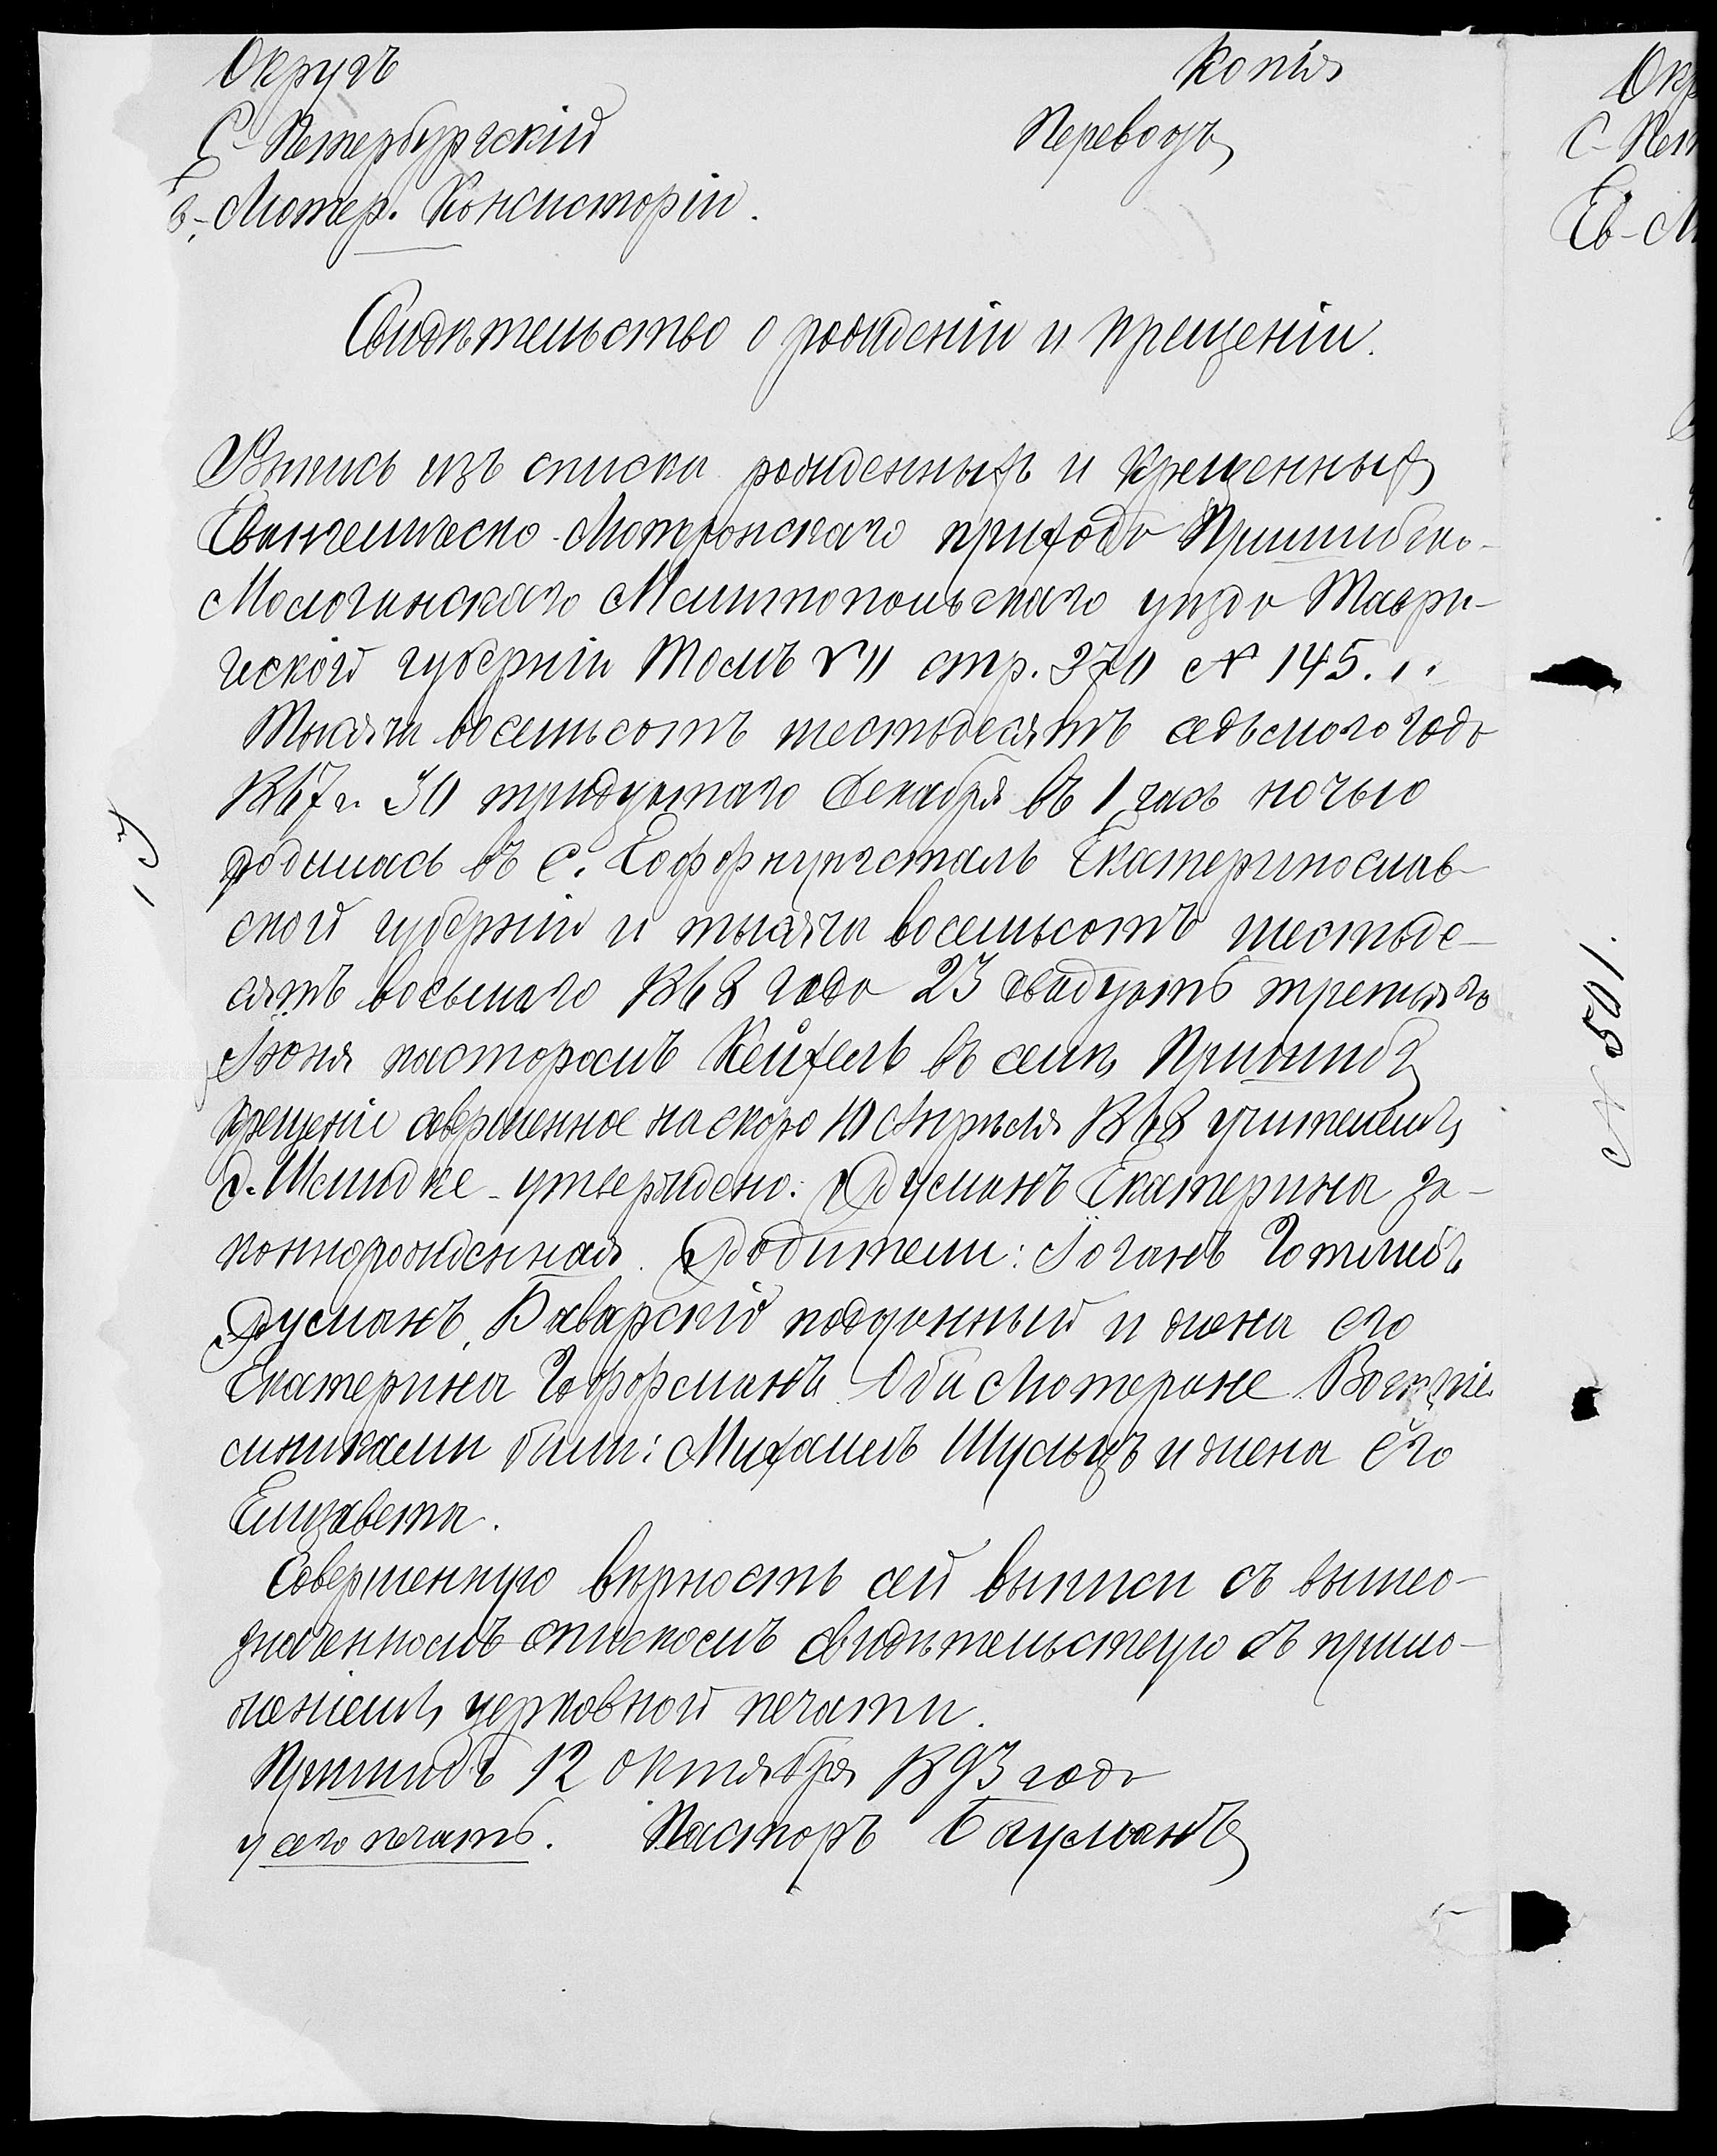 Округъ
Копія
С-Петербургскій
Переводъ
Ев.-Лютер. Консисторіи.
Свидѣтельство о рожденіи и крещеніи.
Выпись изъ списка рожденныхъ и крещенныхъ
Евангелическо-Лютеранскаго прихода Пришибско-
Молочанскаго Мелитопольскаго уѣзда Таври-
ческой губерніи Томъ VII стр. 370 № 145.
Тысяча восемьсотъ шестьдесятъ седьмого года
1867 г. 30 тридцатаго Декабря въ 1 часъ ночью
родилась въ с. Гофнунгсталь Екатеринослав-
ской губерніи и тысяча восемьсотъ шестьде-
сятъ восьмаго 1868 года 23 двадцать третьяго
Іюня пасторомъ Кейхель въ селѣ Пришибъ
крещеніе совершенное наскоро 10 Апрѣля 1868 учителемъ
Д. Шмидке - утверждено: Русманъ Екатерина за-
коннорожденная. Родители: Іоганъ Готлибъ
Русманъ, Баварскій подданный и жена его
Екатерина Гофорсманъ. Оба Лютеране. Воспріе-
мниками были: Михаилъ Шульцъ и жена его
Елизавета.
Совершенную вѣрность сей выписи съ вышео-
значеннымъ спискомъ свидѣтельствую съ прило-
женіемъ церковной печати.
Пришибъ 12 октября 1893 года
у сего печать. Пасторъ Бауманъ
№ 501.
Окр
С-Пет
Ев-Л